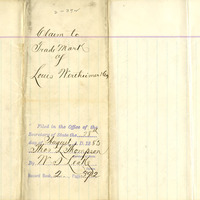 Claim to
Trade Mark
of
Louis Wertheimer
Filed in the Office of the
Secretary of State the
day of August A.D. 1883
Thos L Thompson
By W. S. Leake
Record Book 2